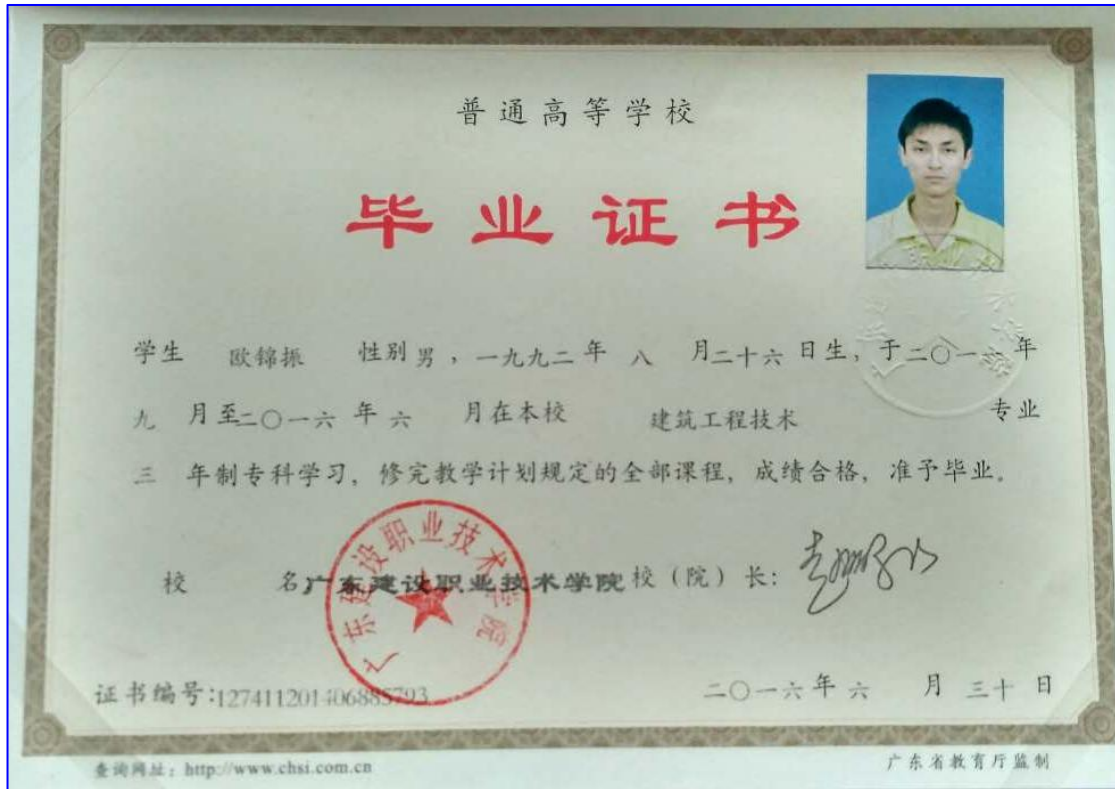 普通高等学校
毕业证书
学生 欧锦振 性别 男，一九九二年 八 月二十六日生，于二〇一 年
九 月至二〇一六年 六 月在本校 建筑工程技术 专业
三 年制专科学习，修完教学计划规定的全部课程，成绩合格，准予毕业。
广东建设职业技术学院
校 名 广东建设职业技术学院 校（院）长：
证书编号：127411201406885793
二〇一六年 六 月 三十 日
查询网址：http://www.chsi.com.cn
广东省教育厅监制